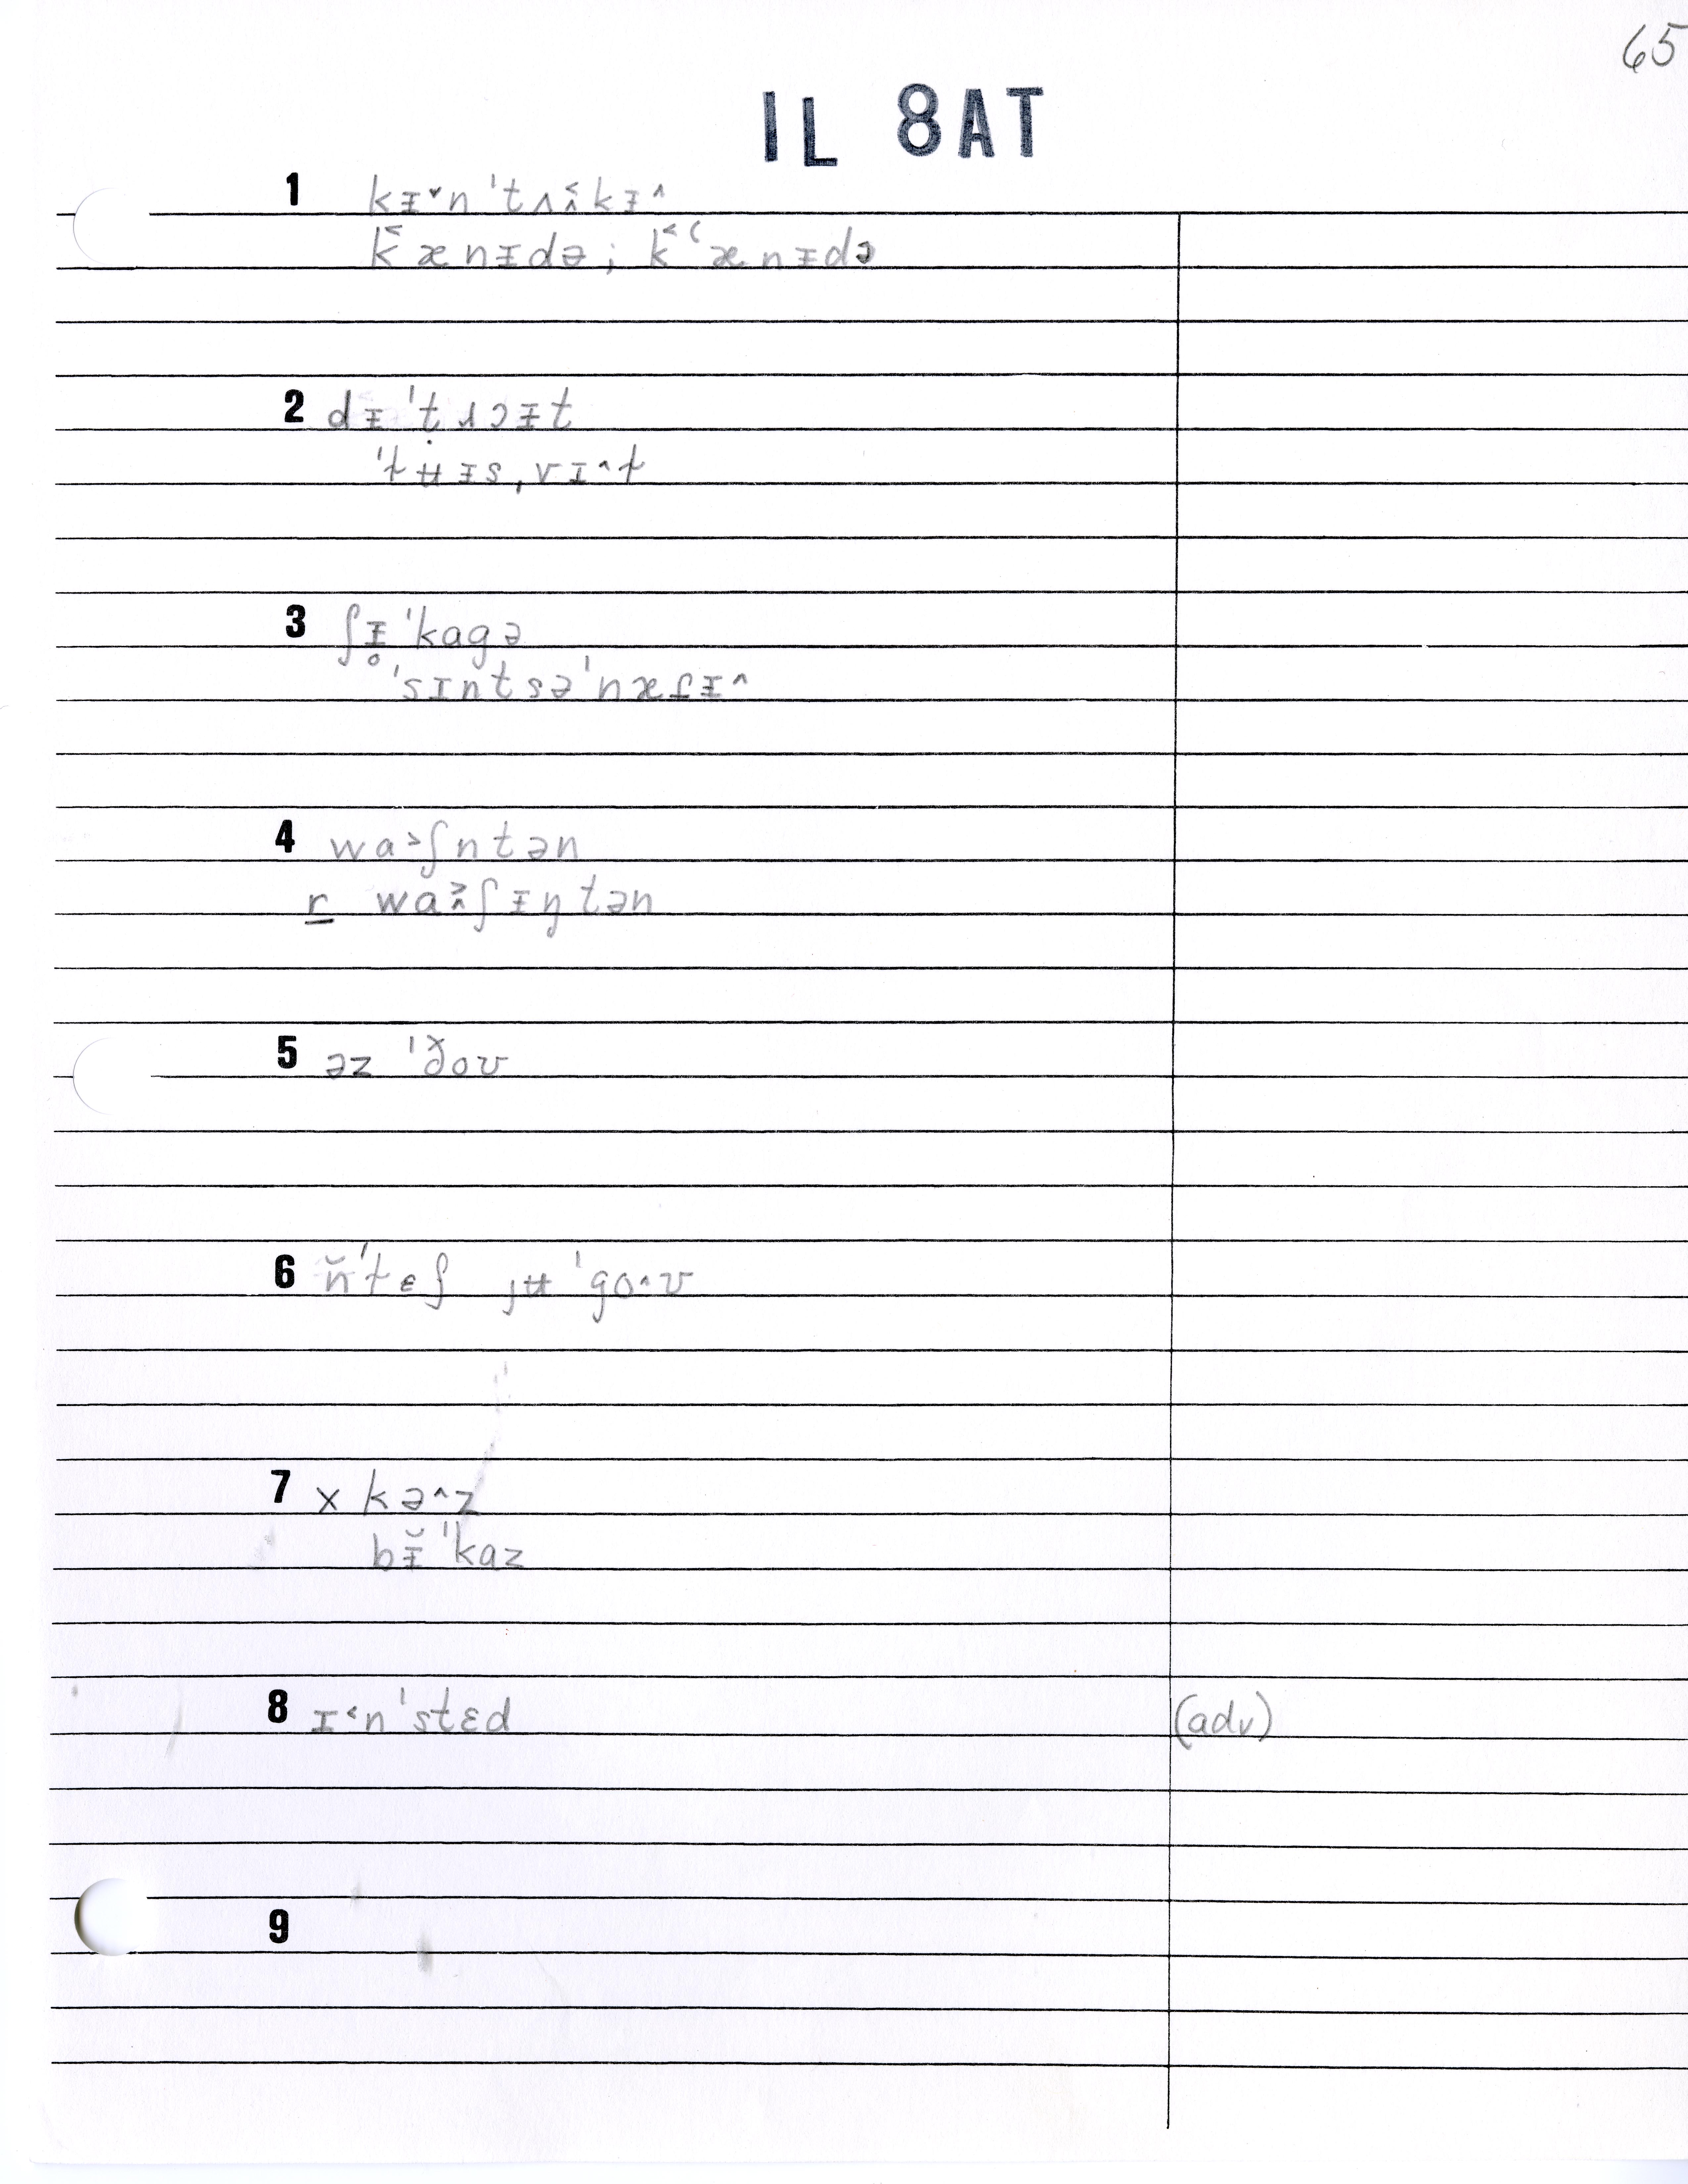 65
IL 8AT
1 kᵻ˅n ˈtʌ˂̭kᵻ˄
k˂ænᵻdə; k˂ʿænᵻdə
2 dᵻ ˈt̩ɹɔᵻt
ˈt̩ʉ̇ᵻsˌvɪ˄t
3 ʃᵻ̥ ˈkagə
ˈsɪntsəˈnæſᵻ˄
4 wa˃ʃntən
r wa˃̭ʃᵻŋtən
5 əz ˈɣ̌oʊ
6 n̆ˈtɛʃ ȷʉ ˈgo˄ʊ
7 x kə˄z
bᵻ̆ ˈkaz
8 ɪ˂nˈstɛd (adv)
9